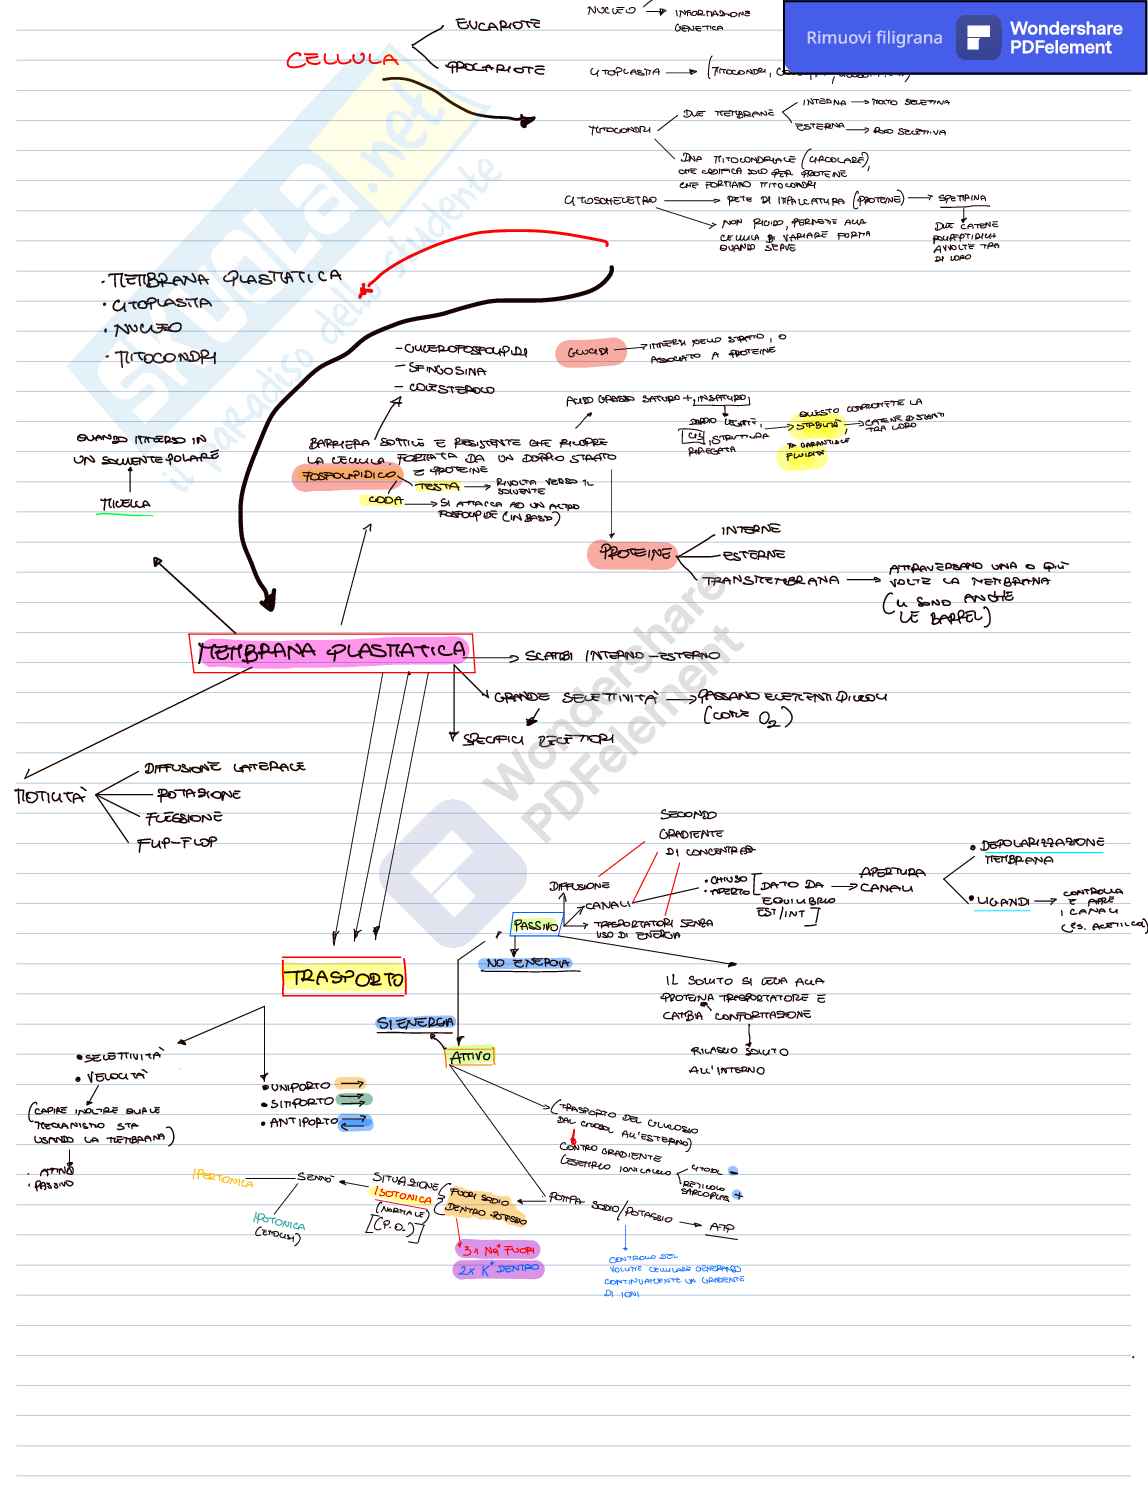 NUCLEO → INFORMAZIONE
GENETICA
Rimuovi filigrana
Wondershare
PDFelement
EUCARIOTE
CELLULA
PROCARIOTE
CITOPLASMA → (MITOCONDRI,
MITOCONDRI
DUE MEMBRANE
INTERNA → MOLTO SELETTIVA
ESTERNA → POCO SELETTIVA
DNA MITOCONDRIALE (CIRCOLARE),
CHE CODIFICA SOLO PER PROTEINE
CHE FORMANO MITOCONDRI
CITOSCHELETRO → RETE DI IMPALCATURA (PROTEINE) → SPETTRINA
NON RIGIDO, PERMETTE ALLA
CELLULA DI VARIARE FORMA
QUANDO SERVE
DUE CATENE
POLIPEPTIDICHE
AVVOLTE TRA
DI LORO
SKUOLA.net
il paradiso dello studente
• MEMBRANA PLASMATICA
• CITOPLASMA
• NUCLEO
• MITOCONDRI
- GLICEROFOSFOLIPIDI
- SFINGOSINA
- COLESTEROLO
GLUCIDI → INTERNI DELLO STRATO, O
ASSOCIATO A PROTEINE
ACIDO GRASSO SATURO + INSATURO,
DOPPIO LEGAME,
CIS, STRUTTURA
PIEGATA
QUESTO COMPROMETTE LA
STABILITÀ,
CATENE DISTANTI
TRA LORO
MA GARANTISCE
FLUIDITÀ
QUANDO IMMERSO IN
UN SOLVENTE POLARE
MICELLA
BARRIERA SOTTILE E RESISTENTE CHE RICOPRE
LA CELLULA. FORMATA DA UN DOPPIO STRATO
FOSFOLIPIDICO E PROTEINE
TESTA → RIVOLTA VERSO IL
SOLVENTE
CODA → SI ATTACCA AD UN ALTRO
FOSFOLIPIDE (IN BASSO)
PROTEINE
INTERNE
ESTERNE
TRANSMEMBRANA → ATTRAVERSANO UNA O PIÙ
VOLTE LA MEMBRANA
(CI SONO ANCHE
LE BARREL)
MEMBRANA PLASMATICA
SCAMBI INTERNO-ESTERNO
GRANDE SELETTIVITÀ → PASSANO ELEMENTI PICCOLI
(COME O₂)
SPECIFICI RECETTORI
Wondershare
PDFelement
MOTILITÀ
DIFFUSIONE LATERALE
ROTAZIONE
FLESSIONE
FLIP-FLOP
SECONDO
GRADIENTE
DI CONCENTRAZ
DIFFUSIONE
CANALI
• CHIUSO
• APERTO
[DATO DA
EQUILIBRIO
EST/INT]
APERTURA
CANALI
• DEPOLARIZZAZIONE
MEMBRANA
• LIGANDI → CONTROLLA
E APRE
I CANALI
(ES. ACETILCOL)
PASSIVO
TRASPORTATORI SENZA
USO DI ENERGIA
NO ENERGIA
IL SOLUTO SI LEGA ALLA
PROTEINA TRASPORTATORE E
CAMBIA CONFORMAZIONE
RILASCIO SOLUTO
ALL'INTERNO
TRASPORTO
SI ENERGIA
ATTIVO
• SELETTIVITÀ
• VELOCITÀ
(CAPIRE INOLTRE QUALE
MECCANISMO STA
USANDO LA MEMBRANA)
• ATTIVO
• PASSIVO
• UNIPORTO →
• SIMPORTO
• ANTIPORTO
(TRASPORTO DEL GLUCOSIO
DAL CITOSOL ALL'ESTERNO)
CONTRO GRADIENTE
(ESEMPIO IONI CALCIO
CITOSOL -
RETICOLO
SARCOPLAS +
POMPA SODIO/POTASSIO → ATP
CONTROLLO DEL
VOLUME CELLULARE GENERANDO
CONTINUAMENTE UN GRADIENTE
DI IONI
(FUORI SODIO
DENTRO POTASSIO
3x Na⁺ FUORI
2x K⁺ DENTRO
SITUAZIONE
ISOTONICA
(NORMALE)
[(P.O.)]
SENNÒ
IPERTONICA
IPOTONICA
(EMOLISI)